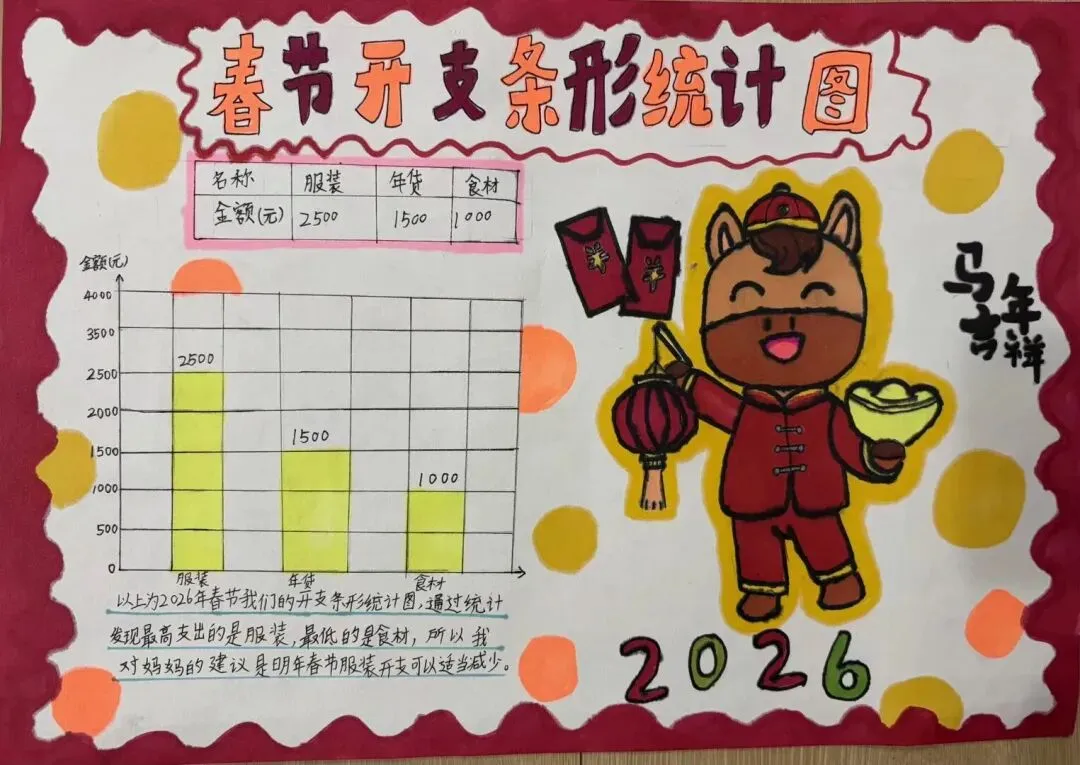 春节开支条形统计图
名称 服装 年货 食材
金额(元) 2500 1500 1000
金额(元)
4000
3500
2500
2000
1500
1000
500
0
2500
1500
1000
服装 年货 食材
以上为2026年春节我们的开支条形统计图,通过统计
发现最高支出的是服装,最低的是食材,所以我
对妈妈的建议是明年春节服装开支可以适当减少。
马年
吉祥
2026